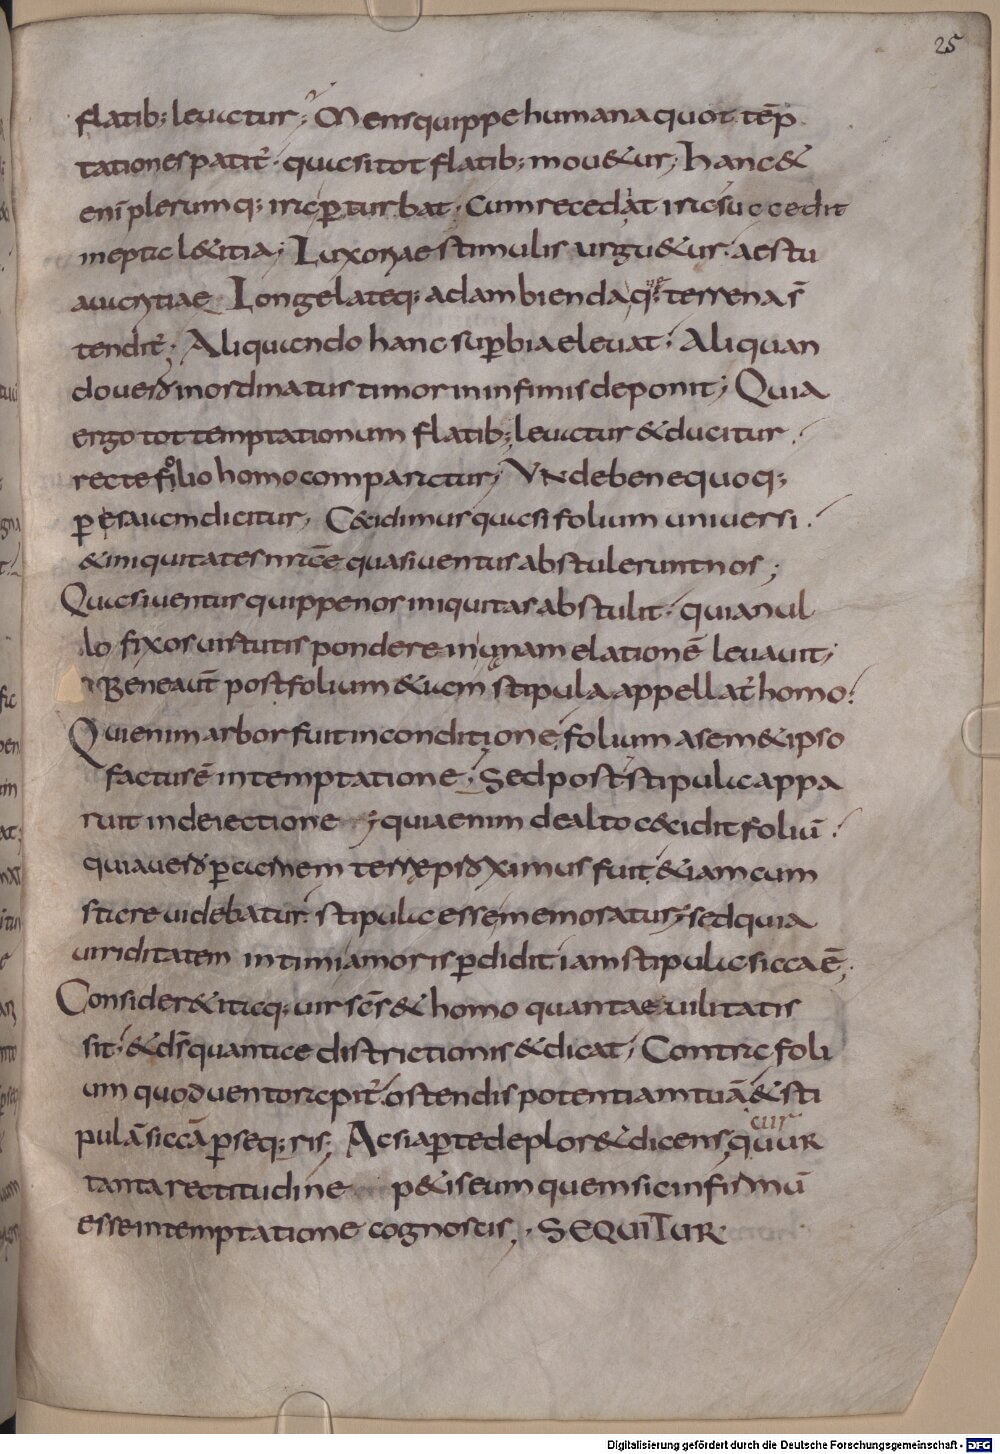 25
flatib; leuatur; Mens quippe humana quot tēp
tationes patit̄ · quasi tot flatib; mou&ur; Hanc &
eni plerumq; ira ꝑturbat · Cum recedat ira succedit
inepta l&itia; Luxoriae stimulis urgu&ur · aestu
auaritiae Longe lateq; ad ambienda q; terrena s̄
tendit̄; Aliquando hanc suꝑbia eleuat; Aliquan
do uero inordinatus timor in infimis deponit; Quia
ergo tot temptationum flatib; leuatur & ducitur ·
recte folio homo comparatur; UNde bene quoq;
ꝑ esaiam dicitur, C&idimus quasi folium uniuersi ·
& iniquitates nrāe quasi uentus abstulerunt nos;
Quasi uentus quippe nos iniquitas abstulit · quia nul
lo fixos uirtutis pondere in uanam elationē leuauit;
Bene aut̄ post folium &iam stipula appellat̄ homo ·
Qui enim arbor fuit in conditione, folium a sem&ipso
factus ē in temptatione; Sed post stipula appa
ruit in deiectione; quia enim de alto c&idit foliū ·
quia uero ꝑ carnem terrę proximus fuit, &iam cum
stare uidebatur stipula esse memoratur; sed quia
uiriditatem intimi amoris ꝑdidit iam stipula sicca ē;
Consider& itaq; uir sc̄s & homo quantae uilitatis
sit · & ds̄ quantae districtionis & dicat; Contra foli
um quod uento rapit̄ ostendis potentiam tuā & sti
pulā siccā ꝑseq;ris; Ac si aꝑte deplor& dicens, quur
cur
tanta rectitudine p&is eum quem sic infirmū
esse in temptatione cognoscis; · SEQUITUR ·
Digitalisierung gefördert durch die Deutsche Forschungsgemeinschaft - DFG